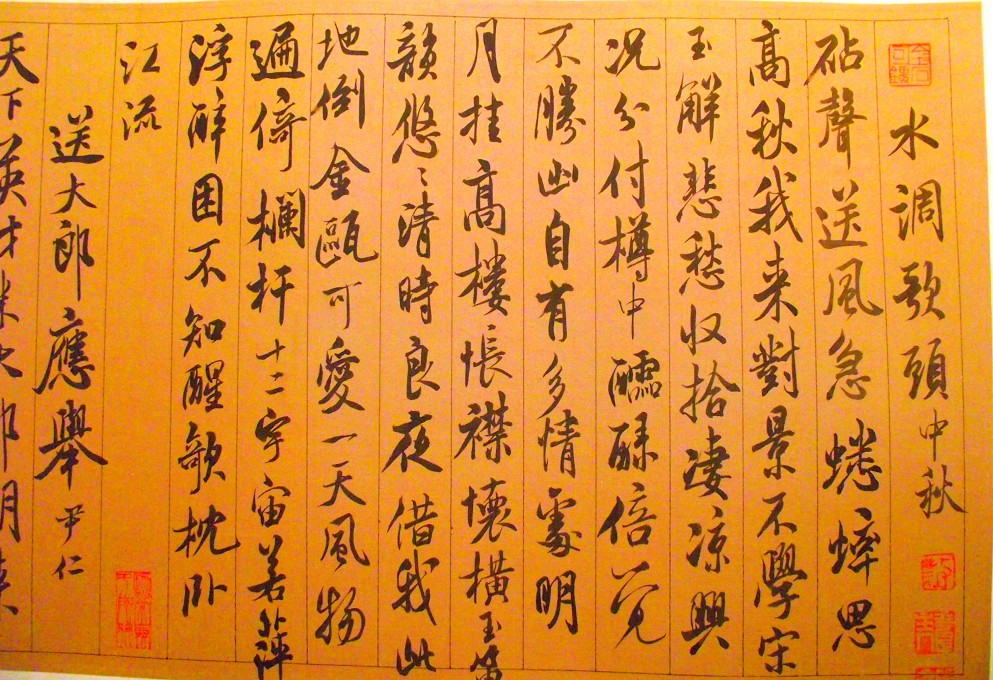 水調歌頭中秋
砧聲送風急蟋蟀思
高秋我来對景不學宋
玉解悲愁収拾凄凉興
况分付樽中醽醁倍覺
不勝幽自有多情處明
月挂高樓悵襟懷橫玉笛
韻悠々清時良夜借我此
地倒金甌可愛一天風物
遍倚欄杆十二宇宙若萍
浮醉困不知醒欹枕卧
江流
送大郎應舉尹仁
天下英才